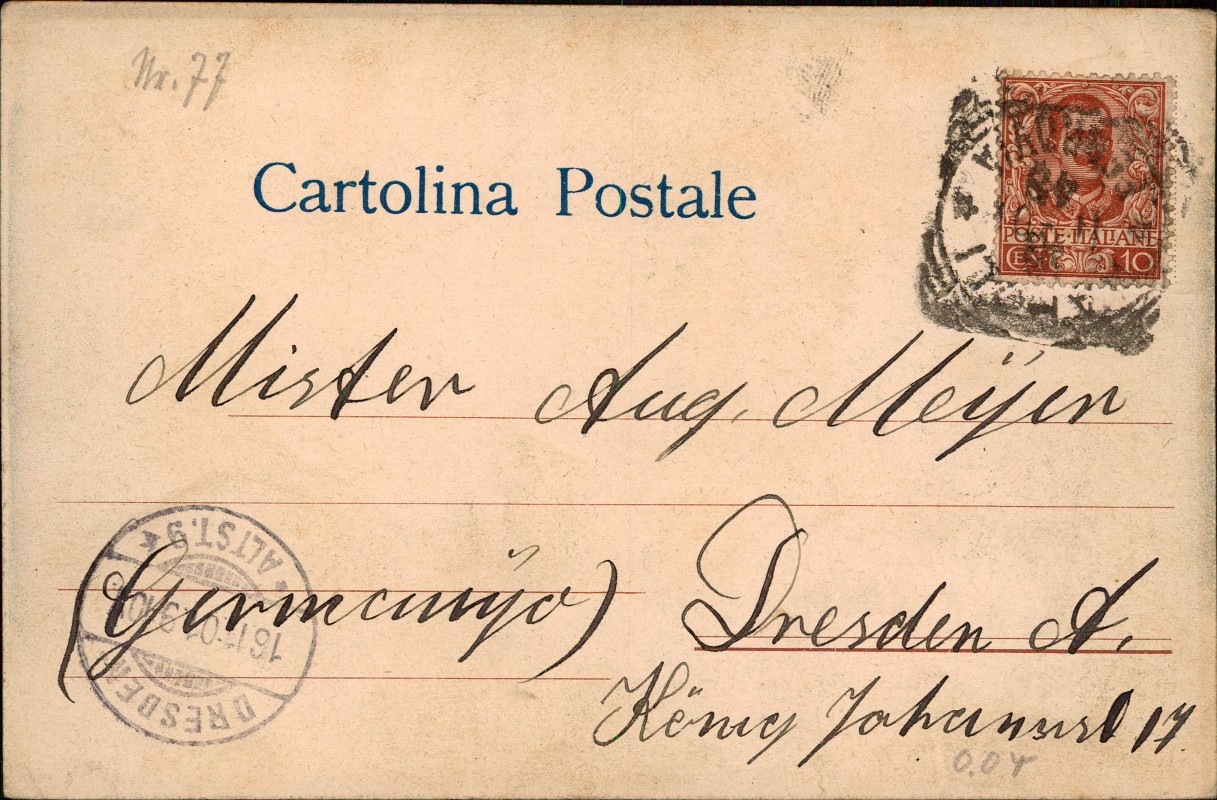 Nr. 77
Cartolina Postale
POSTE·ITALIANE
CEN. 10
Mister Aug. Meÿer
(Germanÿa) Dresden A.
König Johannst 17.
DRESDEN
ALTST. 9
16.11.01.
0.04